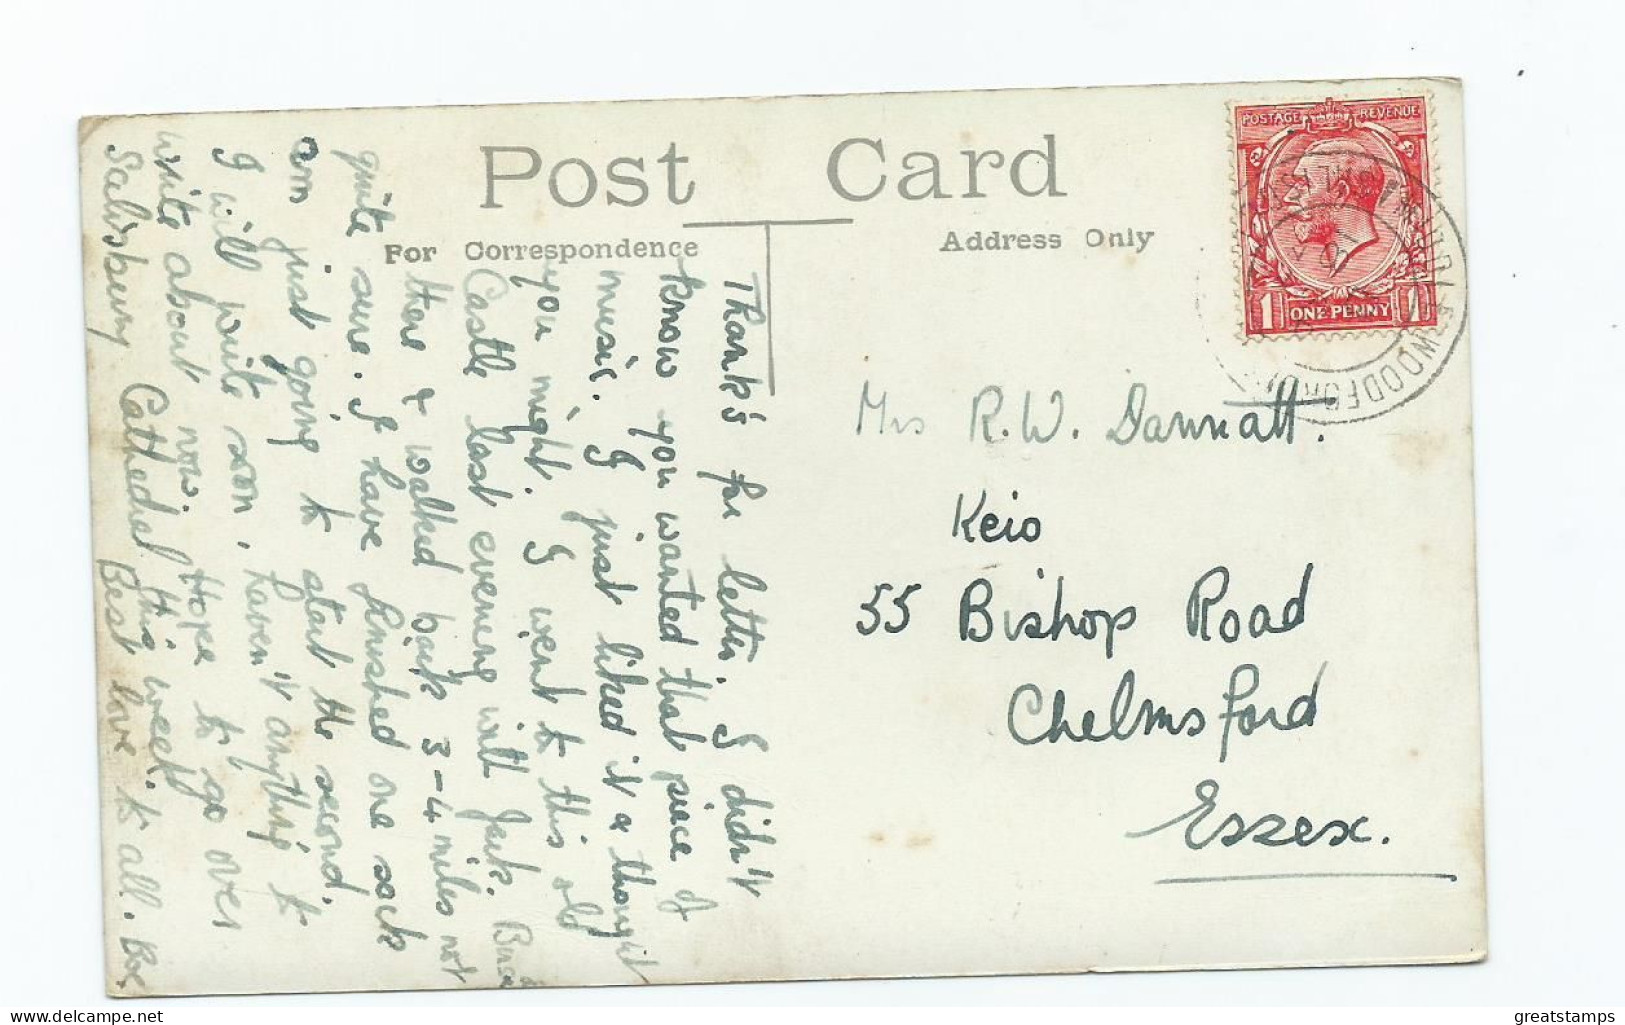 Post Card
For Correspondence
Address Only
POSTAGE REVENUE
1 ONE PENNY 1
WOODFORD
Thank's for letter. I didn't
know you wanted that piece of
music. I just liked it & thought
you might. I went to this old
Castle last evening with Jack.
there & walked back 3-4 miles not
quite sure. I have finished one sock
am just going to start the second.
I will write soon, haven't anything to
write about now. Hope to go over
Salisbury Cathedral this week.
Best love to all.
Mrs R. W. Dannatt.
Keio
55 Bishop Road
Chelmsford
Essex.
www.delcampe.net
greatstamps